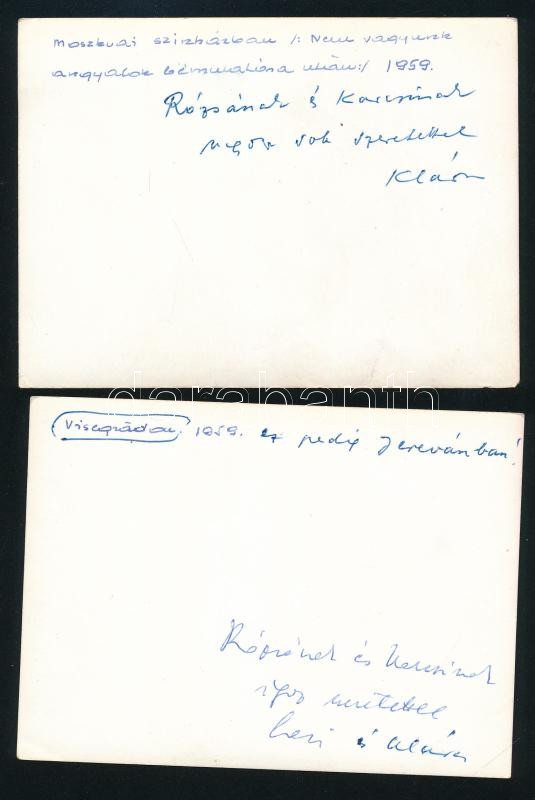 Moszkvai szinházban /: Nem vagyunk
angyalok bémutatása után:/ 1959.
Rózsának és Karcsinak
nagyon sok szeretettel
Klári
darabanth
Visegrádon. 1959. ez pedig Jerevánban!
Rózsának és Karcsinak
igaz szeretettel
és Klári